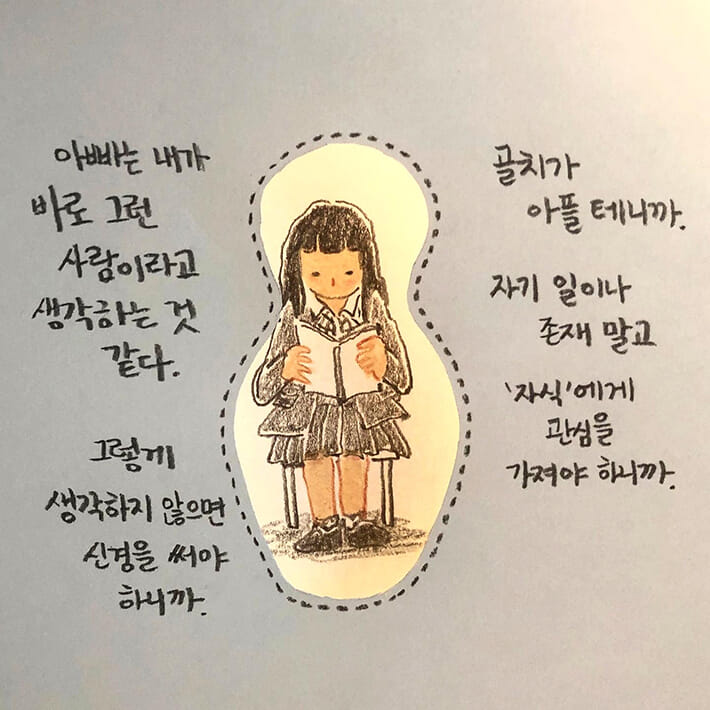 아빠는 내가
바로 그런
사람이라고
생각하는 것
같다.
그렇게
생각하지 않으면
신경을 써야
하니까.
골치가
아플 테니까.
자기 일이나
존재 말고
'자식'에게
관심을
가져야 하니까.